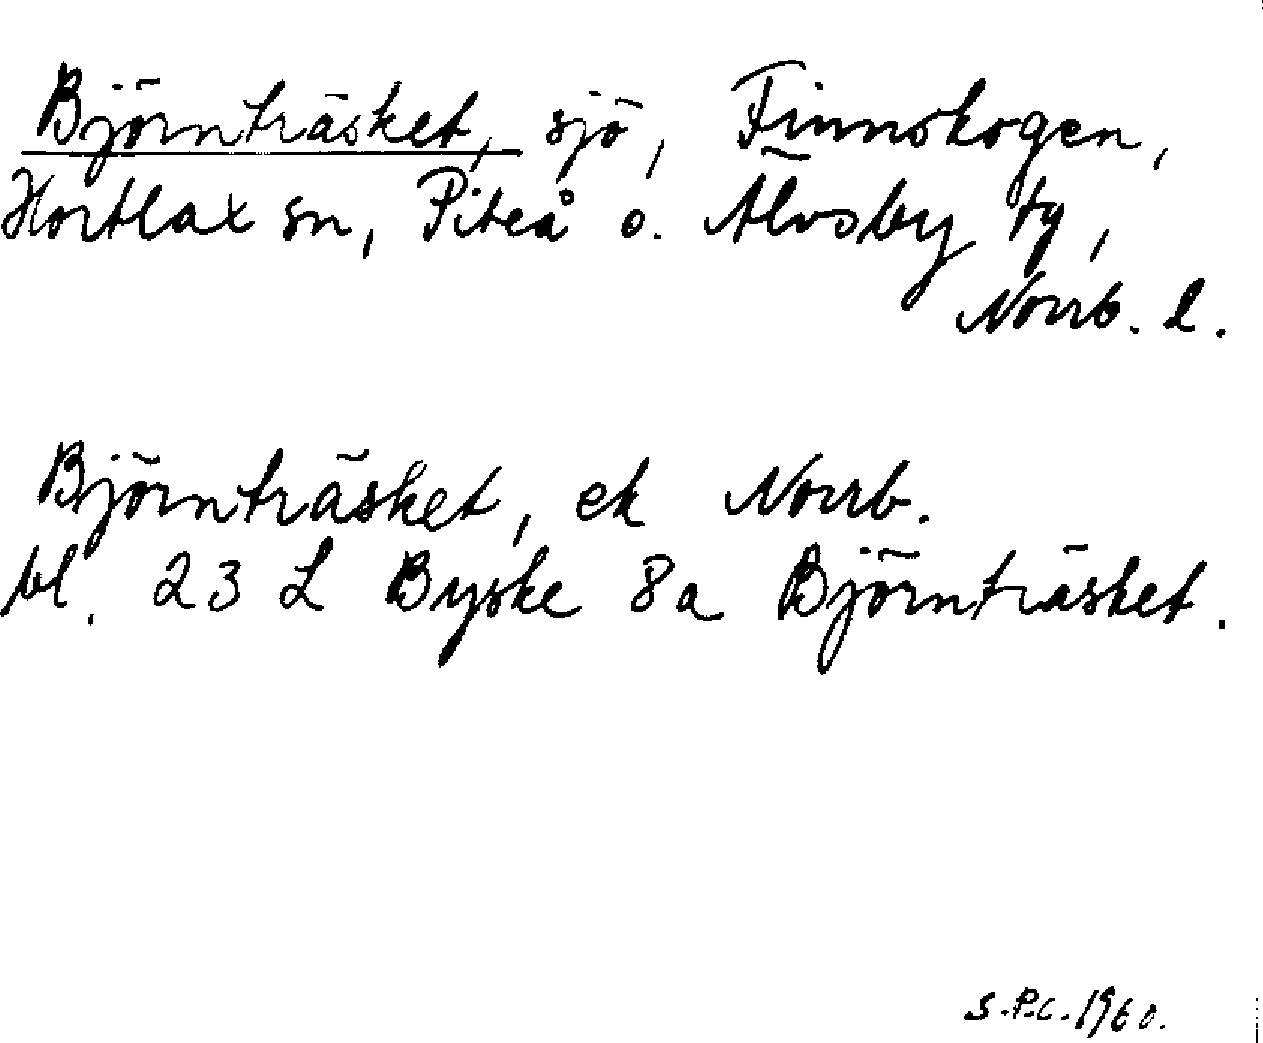 Björnträsket, sjö, Finnskogen,
Hortlax sn, Piteå o. Älvsby tg,
Norrb. l.
Björnträsket, ek Norrb.
bl. 23 L Byske 8a Björnträsket.
S.P.C. 1960.